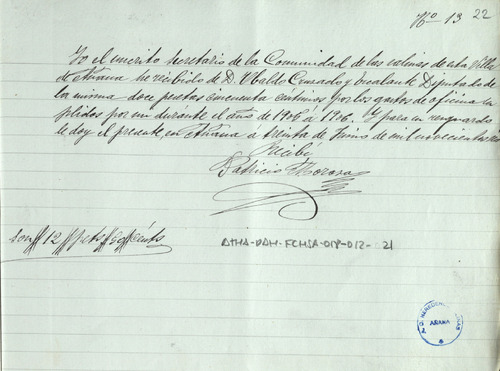 Nº 13 22
Yo el infrascrito Secretario de la Comunidad de las salinas de esta Villa
de Añana he recibido de D. Ubaldo Conrado y Escalante Diputado de
la misma doce pesetas cincuenta centimos por los gastos de oficina su
plidos por mi durante el año de 1905 a 1906. Y para su resguardo
le doy el presente en Añana a treinta de Junio de mil novecientos seis
Recibí
Patricio
Son 12 pets 50 cénts
ATHA-DAH-FCHSA-018-012-021
AÑANA